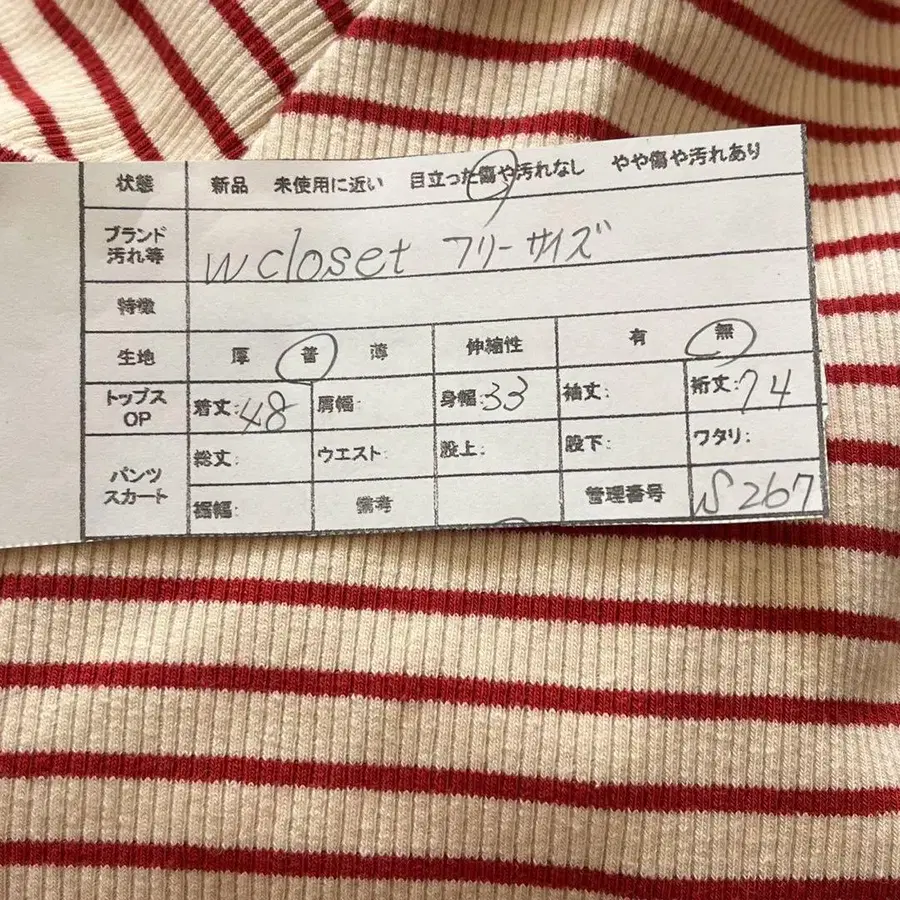 状態 新品 未使用に近い 目立った傷や汚れなし やや傷や汚れあり
ブランド
汚れ等
w closet フリーサイズ
特徴
生地 厚 普 薄 伸縮性 有 無
トップス
OP
着丈:48 肩幅: 身幅:33 袖丈: 裄丈:74
パンツ
スカート
総丈: ウエスト: 股上: 股下: ワタリ:
裾幅: 備考 管理番号 WS267